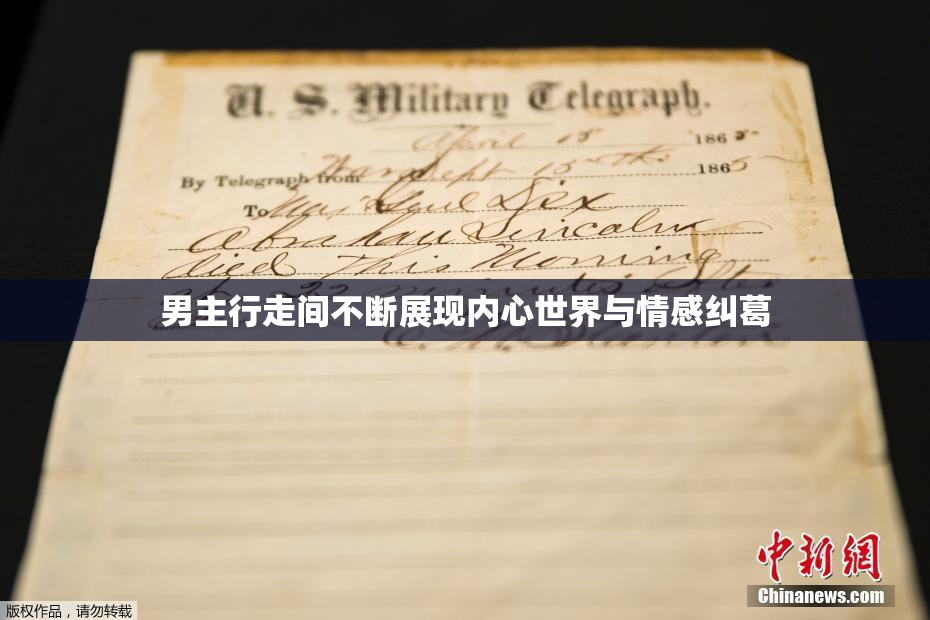 U. S. Military Telegraph.
April 15 1865
By Telegraph from War Dept 15th 1865
To Maj Genl Dix
Abraham Lincoln
died This Morning
at 22 minutes after
男主行走间不断展现内心世界与情感纠葛
E. M. Stanton
中新網
Chinanews.com
版权作品，请勿转载